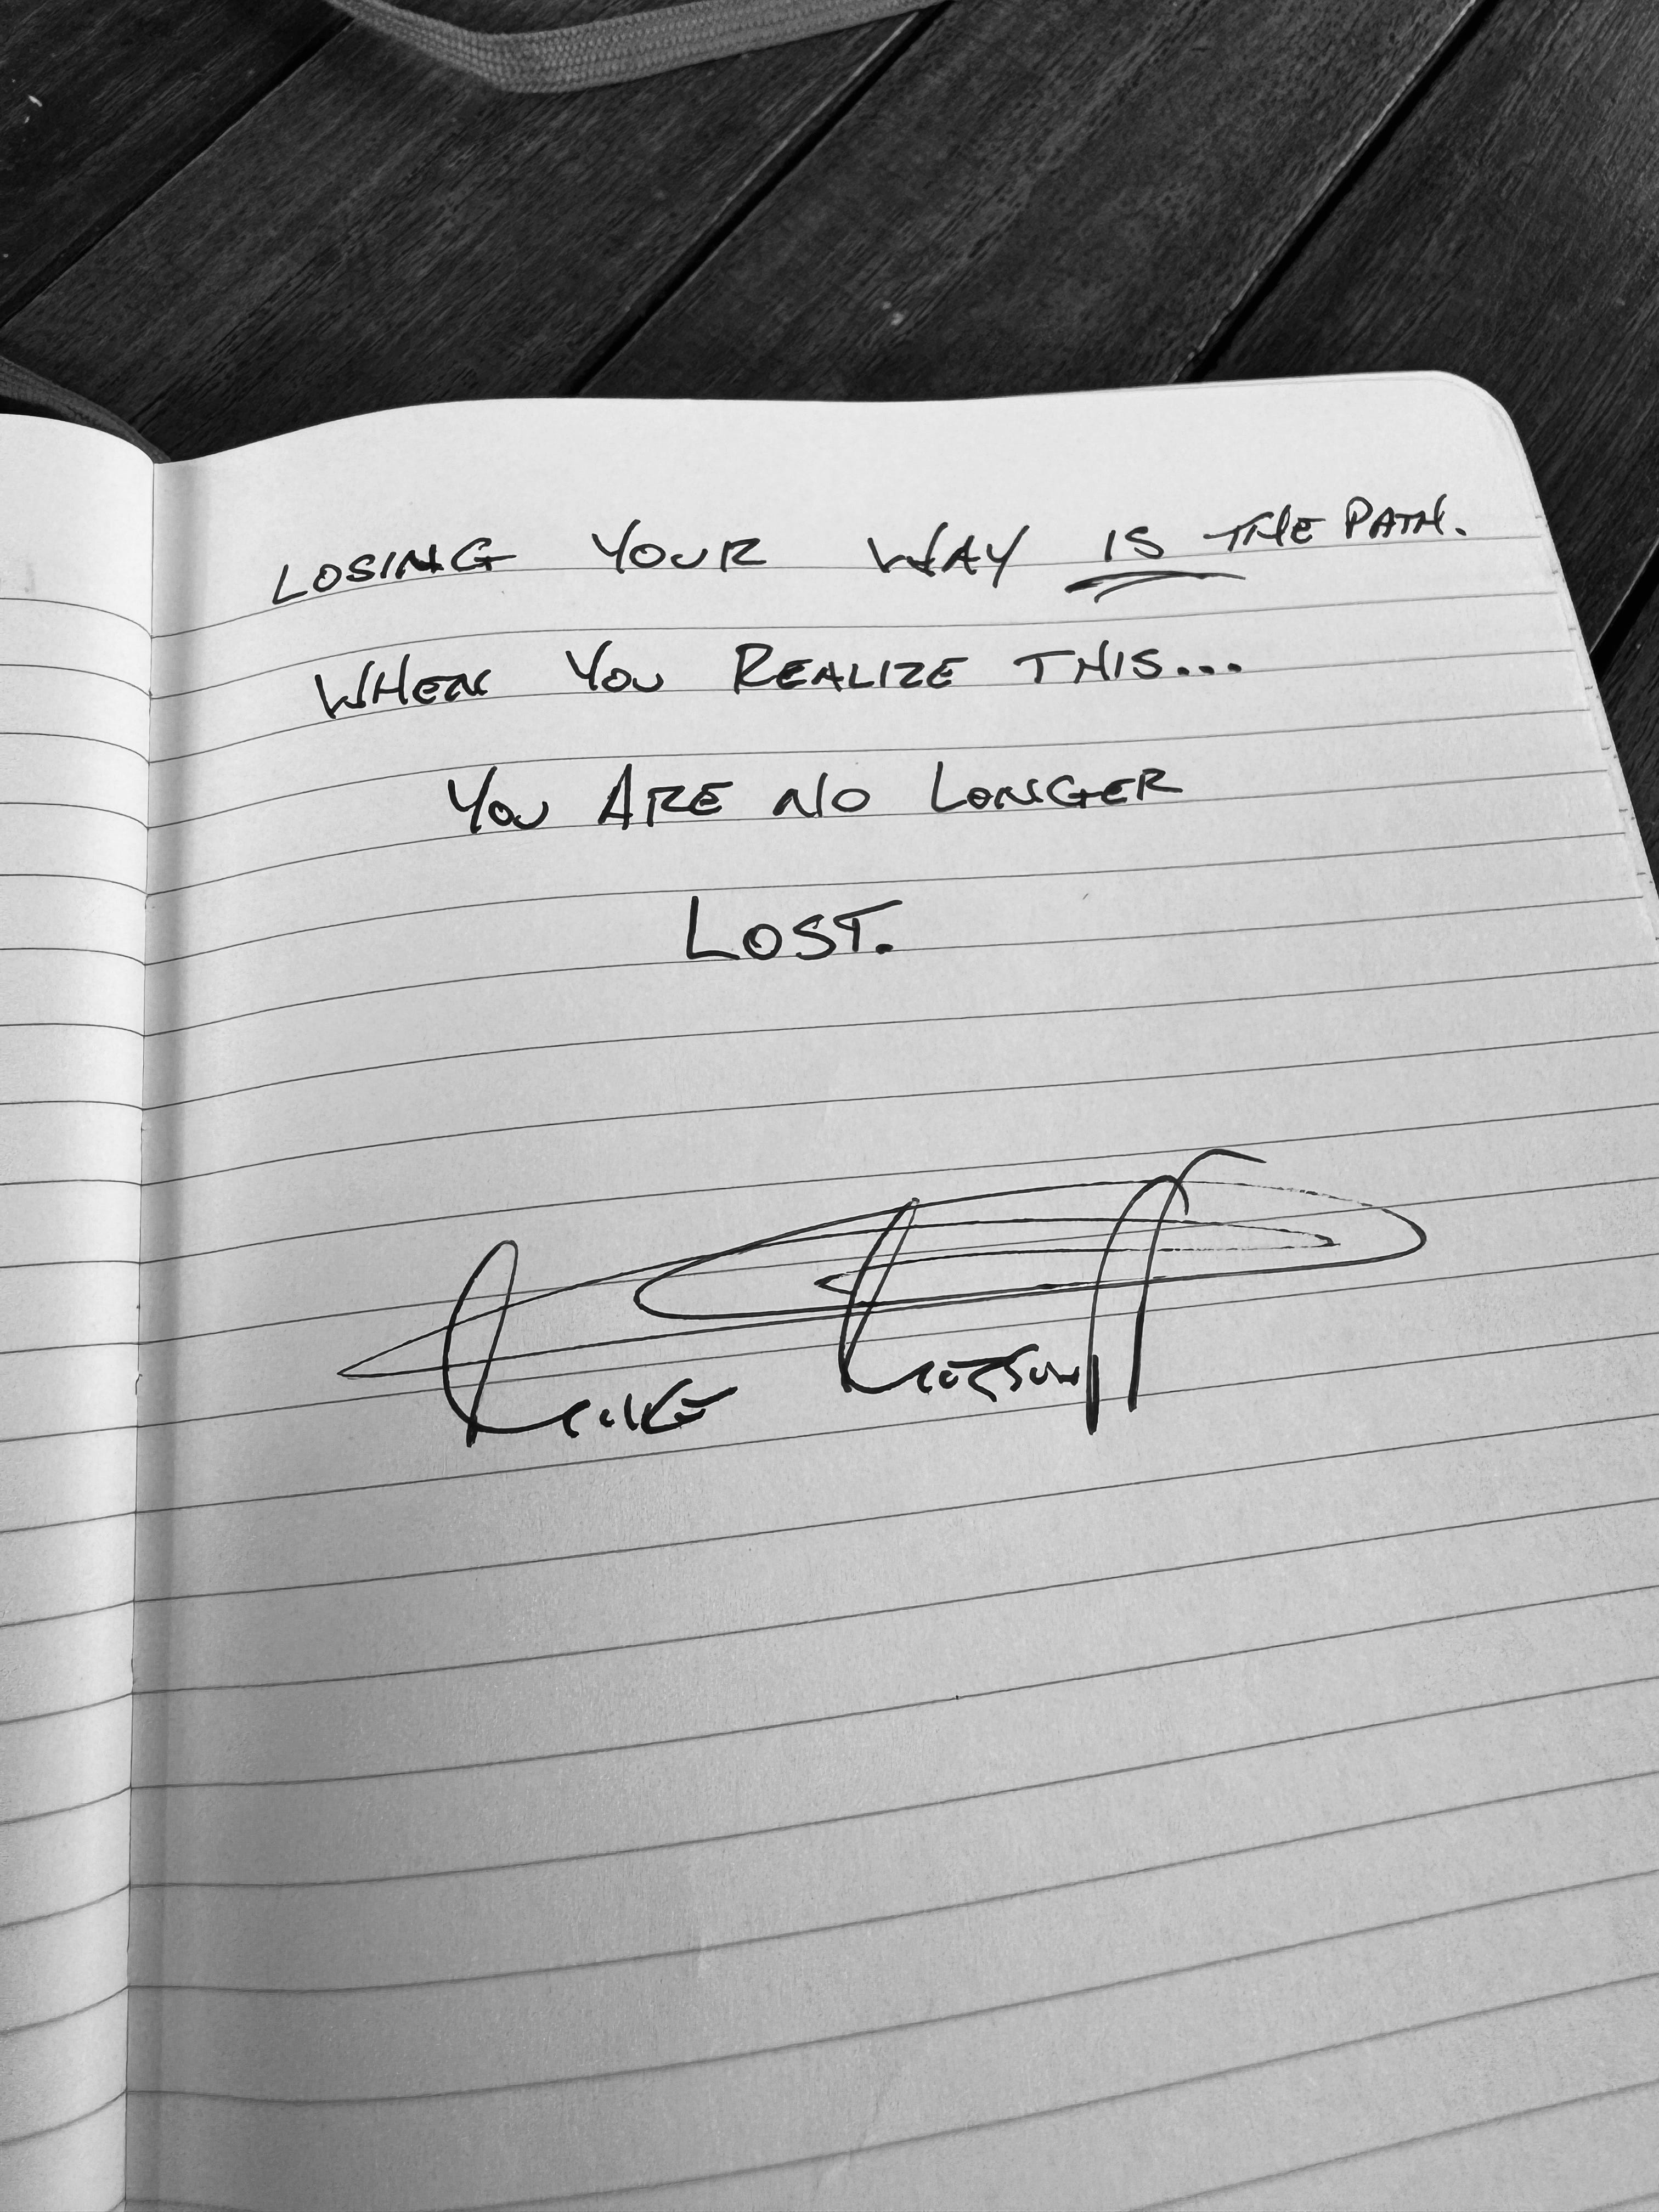 LOSING YOUR WAY IS THE PATH.
WHEN YOU REALIZE THIS...
YOU ARE NO LONGER
LOST.